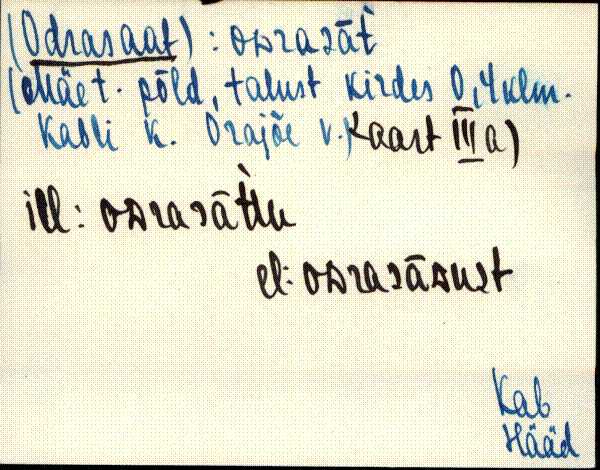 (Odrasaat) : oᴅrasāt̀
(Mäet. põld, talust kirdes 0,4 klm.
Kabli k. Orajõe v. Kaart III a)
ill: oᴅrasāt̀tu
el: oᴅrasāᴅust
Kab
Hääd